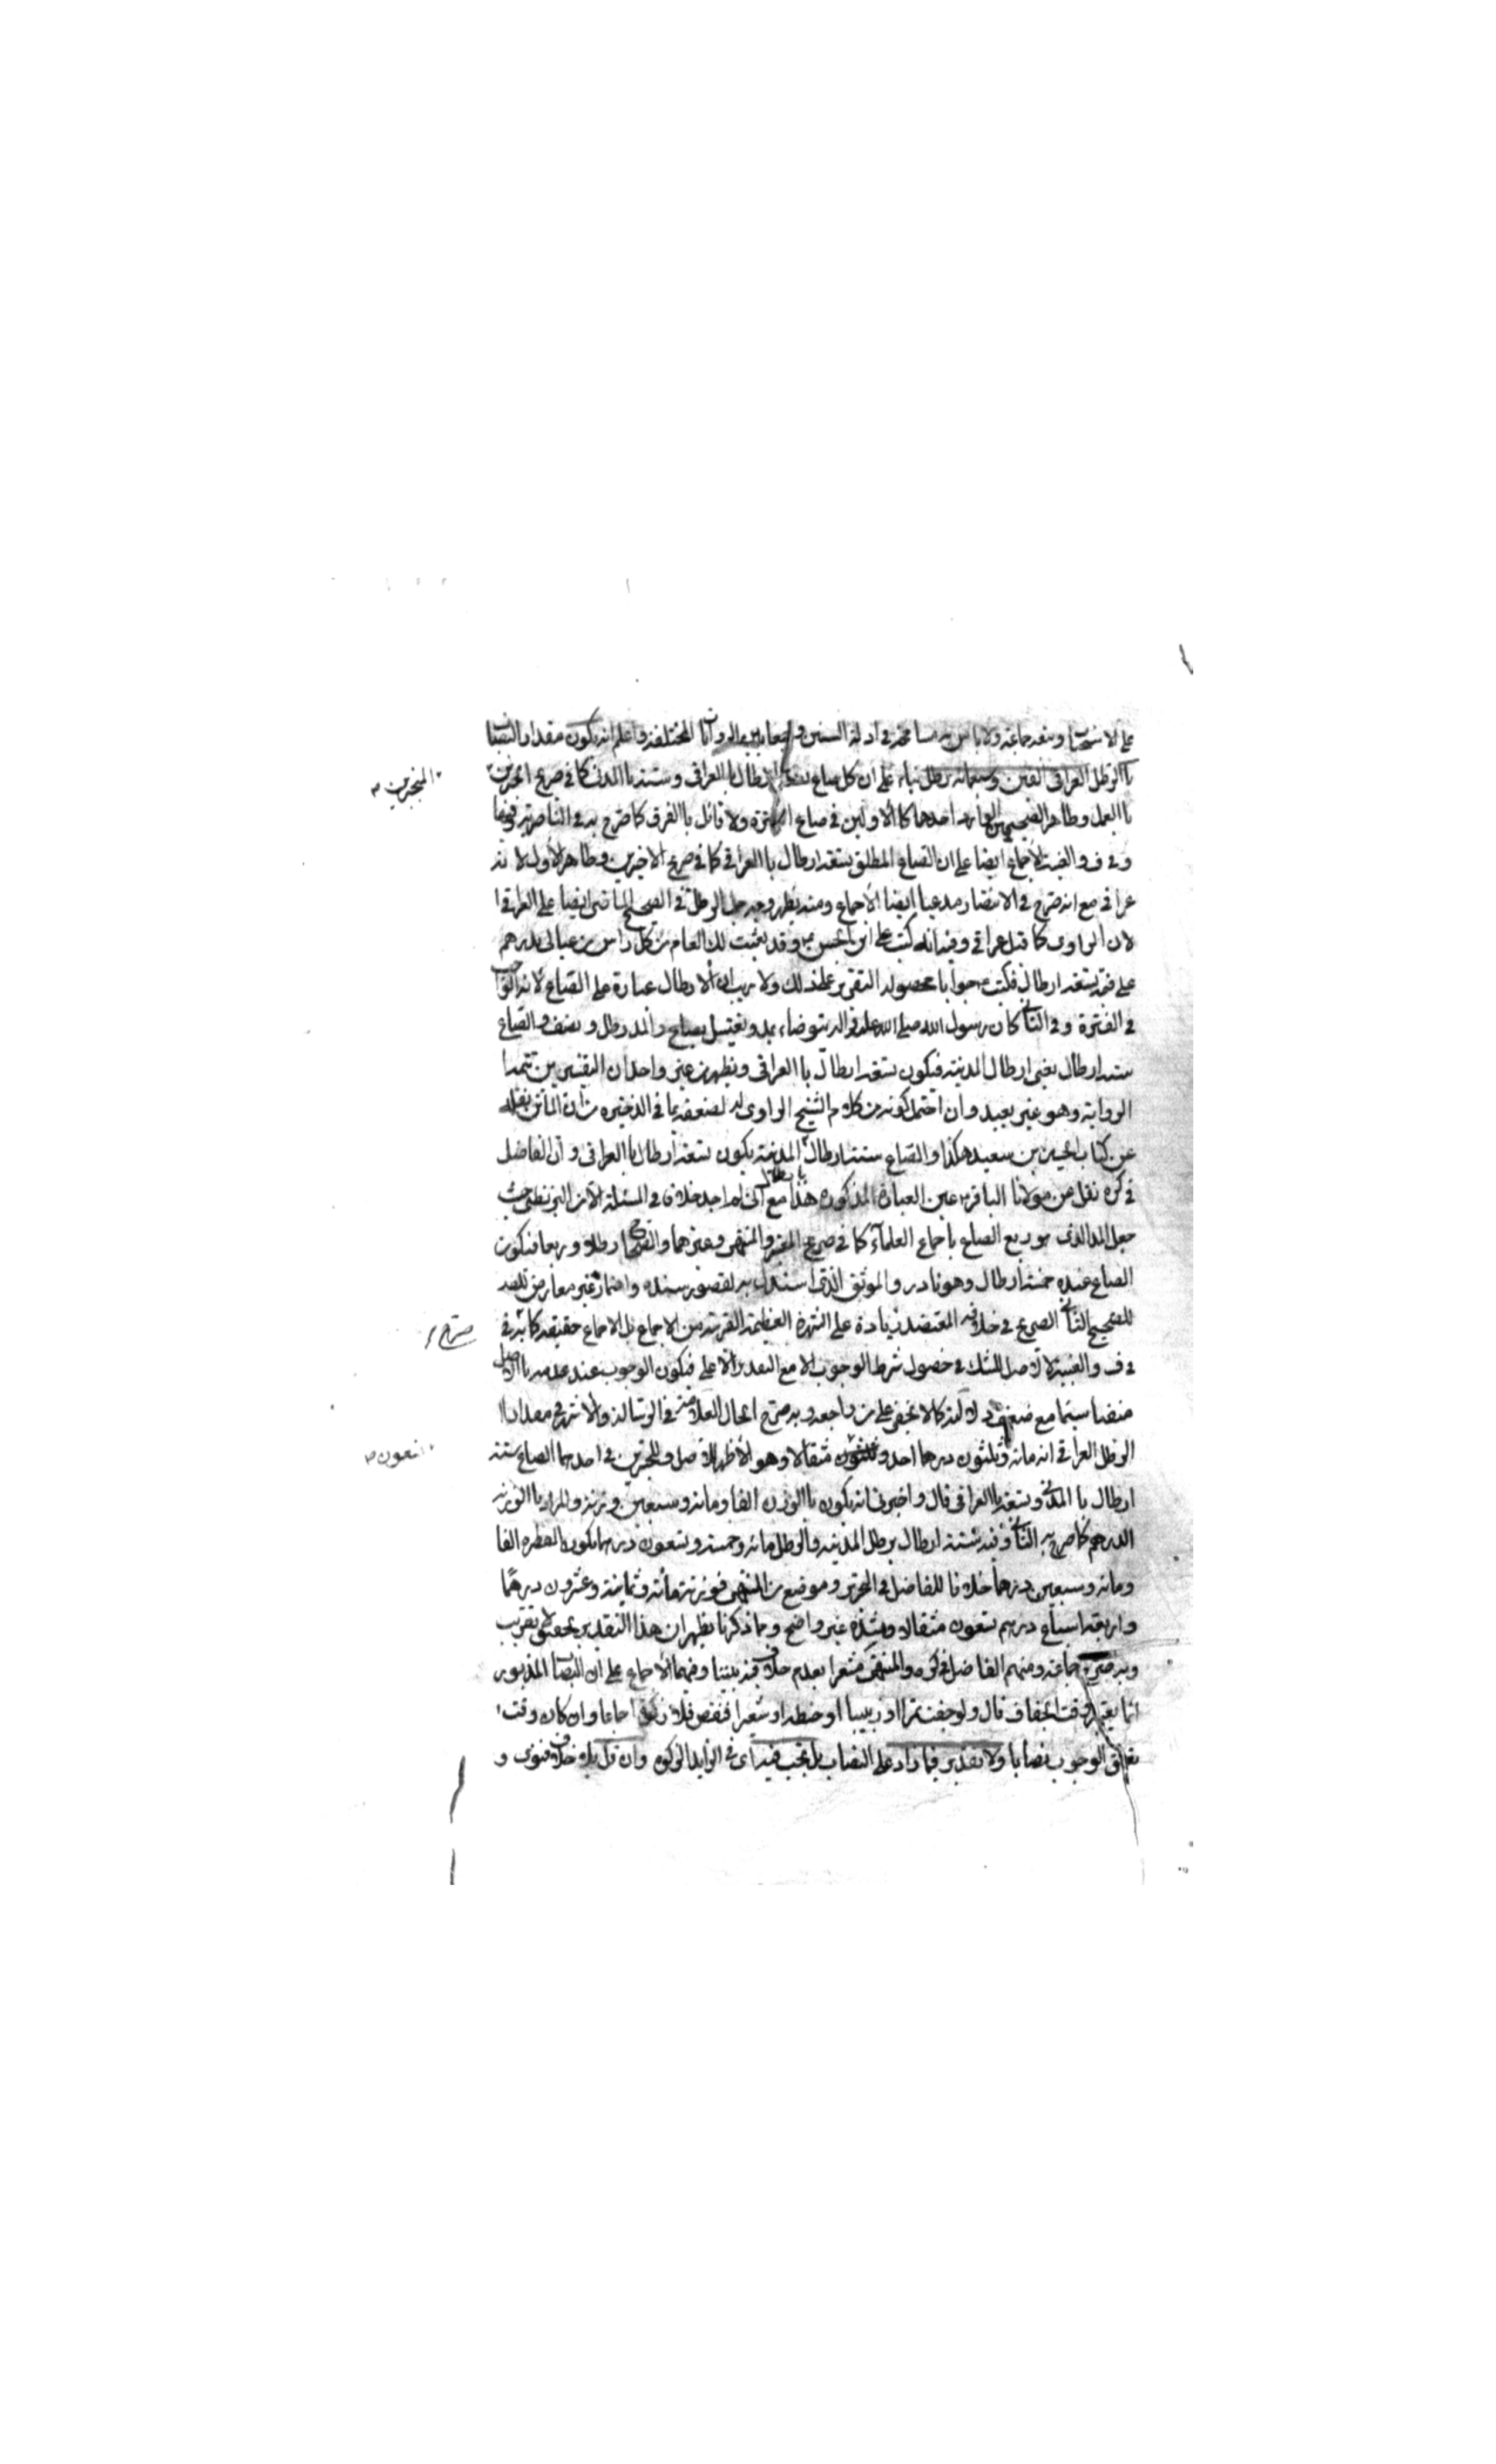 على الاستحباب وتبعه جماعة ولا باس به مسامحة في ادلة السنن وجمعا بين الروايات المختلفة واعلم انه يكون مقدار النصاب
باالرطل العراقي الفين وسبعمائة رطل بناء على ان كل صاع تسعة ارطال باالعراقي وستة باالمدني كما في صريح الخبرين
المنجبرين
باالعمل وظاهر الصحيحين احدهما كاالاولين في صاع الفطرة ولا قائل باالفرق كما صرح به في الناصرية وفيها
وفي ف والغنية الاجماع ايضا على ان الصاع المطلق تسعة ارطال باالعراقي كما في صريح الاخيرين وظاهر الاول لانه
عراقي مع انه صرح في الانتصار مدعيا ايضا الاجماع ومنه يظهر وجه حمل الرطل في الصحيح الماضي ايضا على العراقي
لان الراوي كما قيل عراقي وفيه انه كتب على ابي الحسن وقد بعثت لك العام من كل راس من عيالى بدرهم
على قيمة تسعة ارطال فكتب جوابا محصوله التقرير على ذلك ولا ريب ان الارطال عبارة على الصاع لانه الواجب
في الفترة وفي الثاني كان رسول الله صلى الله عليه واله يتوضاء بمد ويغتسل بصاع والمد رطل ونصف والصاع
ستة ارطال يعني ارطال المدينة فيكون تسعة ارطال باالعراقي ويظهر من غير واحد ان التفسير من تتمة
الرواية وهو غير بعيد وان احتمل كونه من كلام الشيخ الراوي له لضعفه بما في الذخيره من ان الماتن نقله
عن كتاب الحسين بن سعيد هكذا والصاع ستة ارطال باارطال المدينة يكون تسعة ارطال باالعراقي وان الفاضل
في كره نقل عن مولانا الباقر عين العبارة المذكوره هذا مع انى لم اجد خلافا في المسئلة الا من البزنطي حيث
جعل المد الذي هو ربع الصاع باجماع العلماء كما في صريح المعتبر والمنتهى وغيرهما والصحاح رطلا وربعا فيكون
الصاع عنده خمسة ارطال وهو نادر والموثق الذي استدل به لقصور سنده واضماره غير معارض للصد
للصحيح الثاني الصريح في خلافه المعتضد زيادة على الشهرة العظيمة القريبة من الاجماع بل الاجماع حقيقة كما في
صرح
في ف والغنية باالاصل للشك في حصول شرط الوجوب الا مع التقدير الاعلى فيكون الوجوب عند عدمه باالاصل
منفيا سيما مع ضعف دلالته كما لا يخفى على من راجعه وبه صرح الخال العلامة في الرسالة والاشهر في مقدار ا
الرطل العراقي انه مائة وثلثون درهما احد وتسعون مثقالا وهو الاظهر للاصل وللخبرين في احدهما الصاع ستة
تسعون
ارطال باالمدني وتسعة باالعراقي قال واخبرني انه يكون باالوزن الفا ومائة وسبعين وزنة والمراد باالوزنة
الدرهم كما صرح به الثاني وفيه ستة ارطال برطل المدينة والرطل مائة وخمسة وتسعون درهما يكون الفطره الفا
ومائة وسبعين درهما خلافا للفاضل في التحرير وموضع من المنتهى فوزنه مائة وثمانية وعشرون درهما
واربعة اسباع درهم تسعون مثقالا ومستنده غير واضح ومما ذكرنا يظهر ان هذا التقدير تحقيق لا تقريب
وبه صرح جماعة ومنهم الفاضل في كره والمنتهى مشعرا بعدم خلاف فيه بيننا وفيهما الاجماع على ان النصاب المذبور
انما يعتبر وقت الجفاف قال ولو جفت تمرا او زبيبا او حنطة او شعيرا فنقص فلا زكوة اجماعا وان كان وقت
تعلق الوجوب نصابا ولا تقدير فيما زاد على النصاب بل يجب فيه اى في الزايد الزكوة وان قل بلا خلاف فتوى و